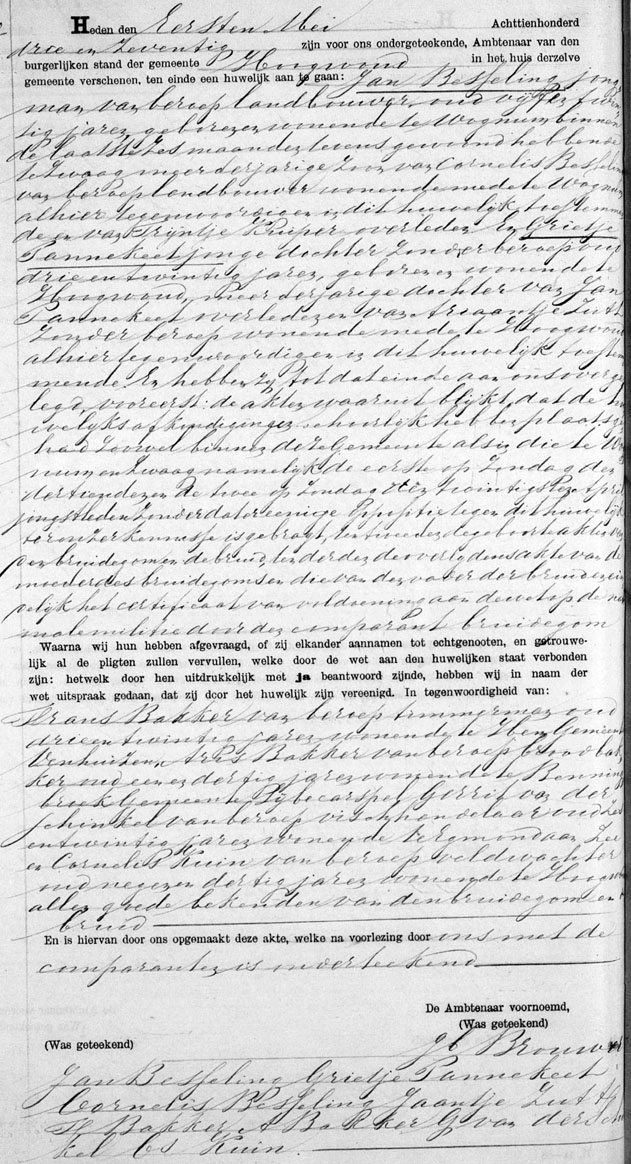 Heden den Eersten Mei Achttienhonderd
drie en Zeventig zijn voor ons ondergeteekende, Ambtenaar van den
burgerlijken stand der gemeente Hoogwoud in het huis derzelve
gemeente verschenen, ten einde een huwelijk aan te gaan: Jan Besseling jong
man van beroep landbouwer, oud vijf en twin
tig jaren geboren en wonende te Wognum binnen
de laatste zes maanden levens gewoond hebbende
te Zwaag meerderjarige Zoon van Cornelis Besselin
van beroep landbouwer wonende mede te Wognum
alhier tegenwoordig en in dit huwelijk toestemmen
de en van Trijntje Kuiper overleden En Grietje
Pannekeet jonge dochter Zonder beroep oud
drie en twintig jaren, geboren en wonende te
Hoogwoud, meerderjarige dochter van Jan
Pannekeet overleden en van Ariaantje Zut
Zonder beroep wonende mede te Hoogwoud
alhier tegenwoordig en in dit huwelijk toestem
mende. En hebben zij tot dat einde aan ons overge
legd, vooreerst: de akten waaruit blijkt, dat de hu
welijksafkondigingen behoorlijk hebben plaats ge
had zoowel binnen deze Gemeente als in die te Wog
num en Zwaag namelijk de eerste op Zondag den
dertienden en de twee op Zondag den twintigsten April
jongstleden zonder dat er eenige tegen dit huwelijk
ter onzer kennisse is gebragt, ten tweede de geboorteakten van
den bruidegom en de bruid, ten derde de overlijdensakte van de
moeder des bruidegoms en die van den vader der bruid en ein
delijk het certificaat van voldoening aan de wet op de na
tionale militie door den comparant bruidegom
Waarna wij hun hebben afgevraagd, of zij elkander aannamen tot echtgenooten, en getrouwe-
lijk al de pligten zullen vervullen, welke door de wet aan den huwelijken staat verbonden
zijn: hetwelk door hen uitdrukkelijk met ja beantwoord zijnde, hebben wij in naam der
wet uitspraak gedaan, dat zij door het huwelijk zijn vereenigd. In tegenwoordigheid van:
Bakker van beroep timmerman oud
drie en twintig jaren wonende te Hem Gemeente
Venhuizen, Aris Bakker van beroep broodbak
ker oud een en dertig jaren wonende te Benning
broek Gemeente Sijbecarspel Gerrit van der
Schinkel van beroep vischhandelaar oud zes
en twintig jaren wonende te Egmond aan Zee
en Cornelis Kuin van beroep veldwachter
oud negen en dertig jaren wonende te Hoogwou
allen goede bekenden van den bruidegom en
bruid
En is hiervan door ons opgemaakt deze akte, welke na voorlezing door ons met de
comparanten is onderteekend
De Ambtenaar voornoemd,
(Was geteekend)
(Was geteekend) Brouwer
Jan Besseling Grietje Pannekeet
Cornelis Besseling Jaantje Zut
Bakker A Bakker G van der Schin
kel Cs Kuin.